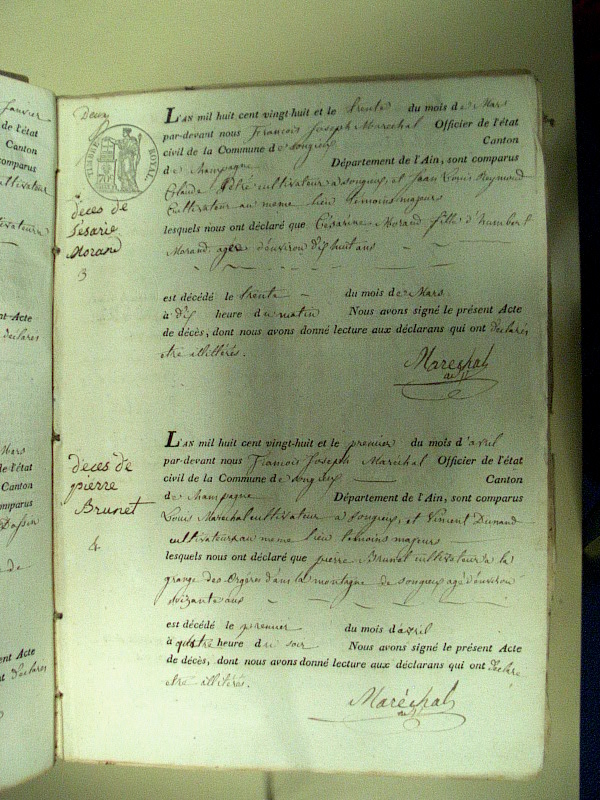 Deux
TIMBRE ROYAL
L'AN mil huit cent vingt-huit et le trente du mois de Mars
par-devant nous francois Joseph Marechal Officier de l'état
civil de la Commune de songieux Canton
de champagne Département de l'Ain, sont comparus
Claude cultivateur a songieux, et Jean Louis Reymond
Cultivateur au meme lieu temoins majeurs
lesquels nous ont déclaré que Césarine Morand fille d'humbert
Morand agée d'environ dix huit ans
est décédé le trente du mois de Mars
à dix heure du matin Nous avons signé le présent Acte
de décès, dont nous avons donné lecture aux déclarans qui ont déclarés
etre illitérés.
Marechal
deces de
Césarie
Morand
3
L'AN mil huit cent vingt-huit et le premier du mois d'avril
par-devant nous francois Joseph Maréchal Officier de l'état
civil de la Commune de songieux Canton
de champagne Département de l'Ain, sont comparus
Louis Marechal cultivateur a songieux, et Vincent Dunand
cultivateur au meme lieu temoins majeurs
lesquels nous ont déclaré que pierre Brunet cultivateur a la
grange des Orgères dans la montagne de songieux agé d'environ
soixante ans
est décédé le premier du mois d'avril
à quatre heure du soir Nous avons signé le présent Acte
de décès, dont nous avons donné lecture aux déclarans qui ont declaré
etre illitérés.
Maréchal
deces de
pierre
Brunet
4
Janvier
de l'état
Canton
comparus
cultivateur
Acte
déclarés
Mars
de l'état
Canton
comparus
ent Acte
déclarés